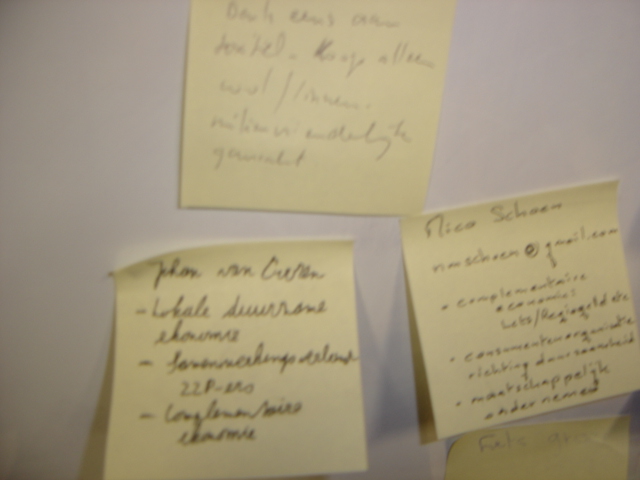 Denk eens aan
alleen
wol / linnen.
milieuvriendelijk
gemaakt
Johan van
- Lokale duurzame
ekonomie
- Samenwerkings
ZZP-ers
- Complementaire
economie
Nico Schoen
nmschoen@gmail.com
• complementaire
economie:
Lets/Regiogeld etc
• consumentenorganisatie
richting duurzaamheid
• maatschappelijk
ondernemen